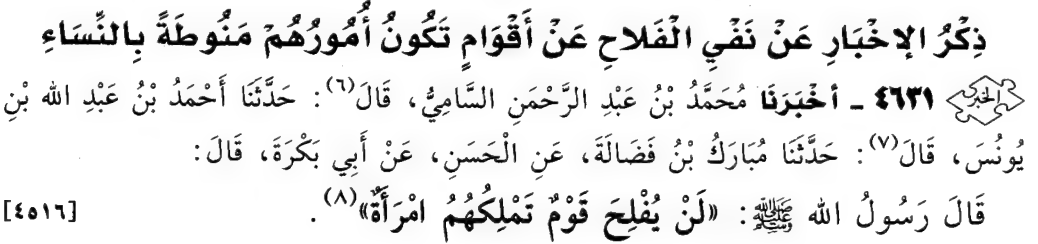 ذِكْرُ الإخْبَارِ عَنْ نَفْيِ الْفَلاحِ عَنْ أَقْوَامٍ تَكُونُ أُمُورُهُمْ مَنُوطَةً بِالنِّسَاءِ
الخبر ٤٦٣١ ـ أخْبَرَنَا مُحَمَّدُ بْنُ عَبْدِ الرَّحْمَنِ السَّامِيُّ، قَالَ(٦): حَدَّثَنَا أَحْمَدُ بْنُ عَبْدِ الله بْنِ
يُونُسَ، قَالَ(٧): حَدَّثَنَا مُبَارَكُ بْنُ فَضَالَةَ، عَنِ الْحَسَنِ، عَنْ أَبِي بَكْرَةَ، قَالَ:
قَالَ رَسُولُ الله ﷺ: «لَنْ يُفْلِحَ قَوْمٌ تَمْلِكُهُمُ امْرَأَةٌ»(٨). [٤٥١٦]